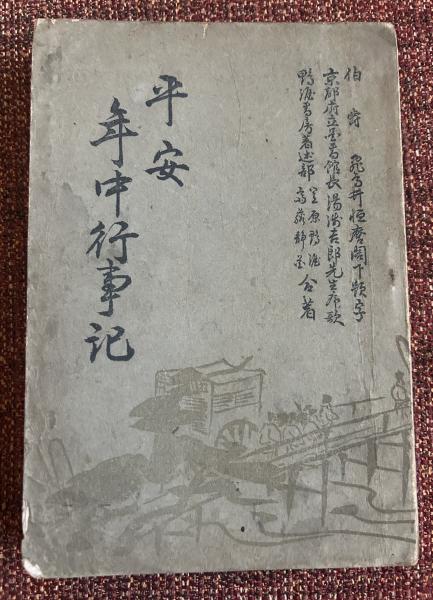 伯爵 飛鳥井恒麿閣下題字
京都府立図書館長湯浅吉郎先生序歌
鴨涯書房著述部 笠原鴨涯
合著
平安
年中行事記